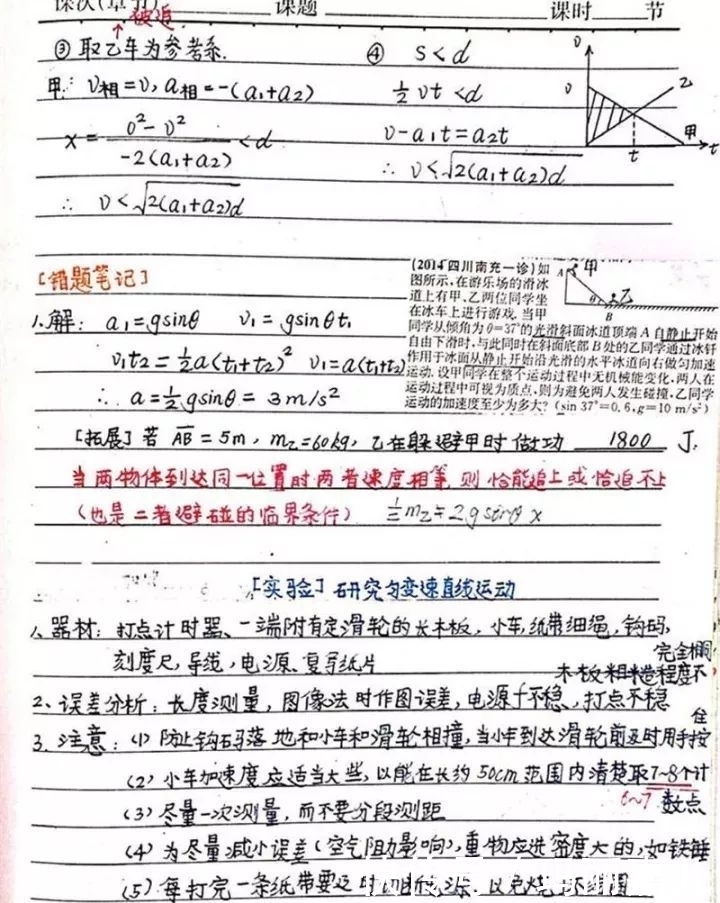 课次(章节) 课题 课时 节
被追
③ 取乙车为参考系.
④ S<d
甲: υ相=υ, a相=-(a₁+a₂)
½υt<d
x= (0²-υ²)/(-2(a₁+a₂)) <d
υ-a₁t=a₂t
∴ υ<√2(a₁+a₂)d
∴ υ<√2(a₁+a₂)d
υ
υ
乙
甲
t
t
[错题笔记]
(2014四川南充一诊)如
图所示,在游乐场的滑冰
道上有甲、乙两位同学坐
在冰车上进行游戏.当甲
同学从倾角为θ=37°的光滑斜面冰道顶端A自静止开始
自由下滑时,与此同时在斜面底部B处的乙同学通过冰钎
作用于冰面从静止开始沿光滑的水平冰道向右做匀加速
运动.设甲同学在整个运动过程中无机械能变化,两人在
运动过程中可视为质点,则为避免两人发生碰撞,乙同学
运动的加速度至少为多大?(sin 37°=0.6,g=10 m/s²)
A 甲
θ 乙
B
1.解: a₁=gsinθ υ₁=gsinθt₁
υ₁t₂=½a(t₁+t₂)² υ₁=a(t₁+t₂)
∴ a=½gsinθ=3m/s²
[拓展] 若 AB=5m, m乙=60kg, 乙在躲避甲时做功 1800 J.
当两物体到达同一位置时两者速度相等,则恰能追上或恰追不上
(也是二者避碰的临界条件)
[实验] 研究匀变速直线运动
1、器材: 打点计时器、一端附有定滑轮的长木板,小车,纸带细绳,钩码,
刻度尺,导线,电源、复写纸片
完全相同
木板粗糙程度不
2、误差分析: 长度测量,图像法时作图误差,电源f不稳,打点不稳
3、注意: (1) 防止钩码落地和小车和滑轮相撞,当小车到达滑轮前及时用手按
住
(2) 小车加速度应适当大些,以能在长约50cm范围内清楚取7~8个计
6~7 数点
(3) 尽量一次测量,而不要分段测距
(4) 为尽量减小误差(空气阻力影响),重物应选密度大的,如铁锤
(5) 每打完一条纸带要及时